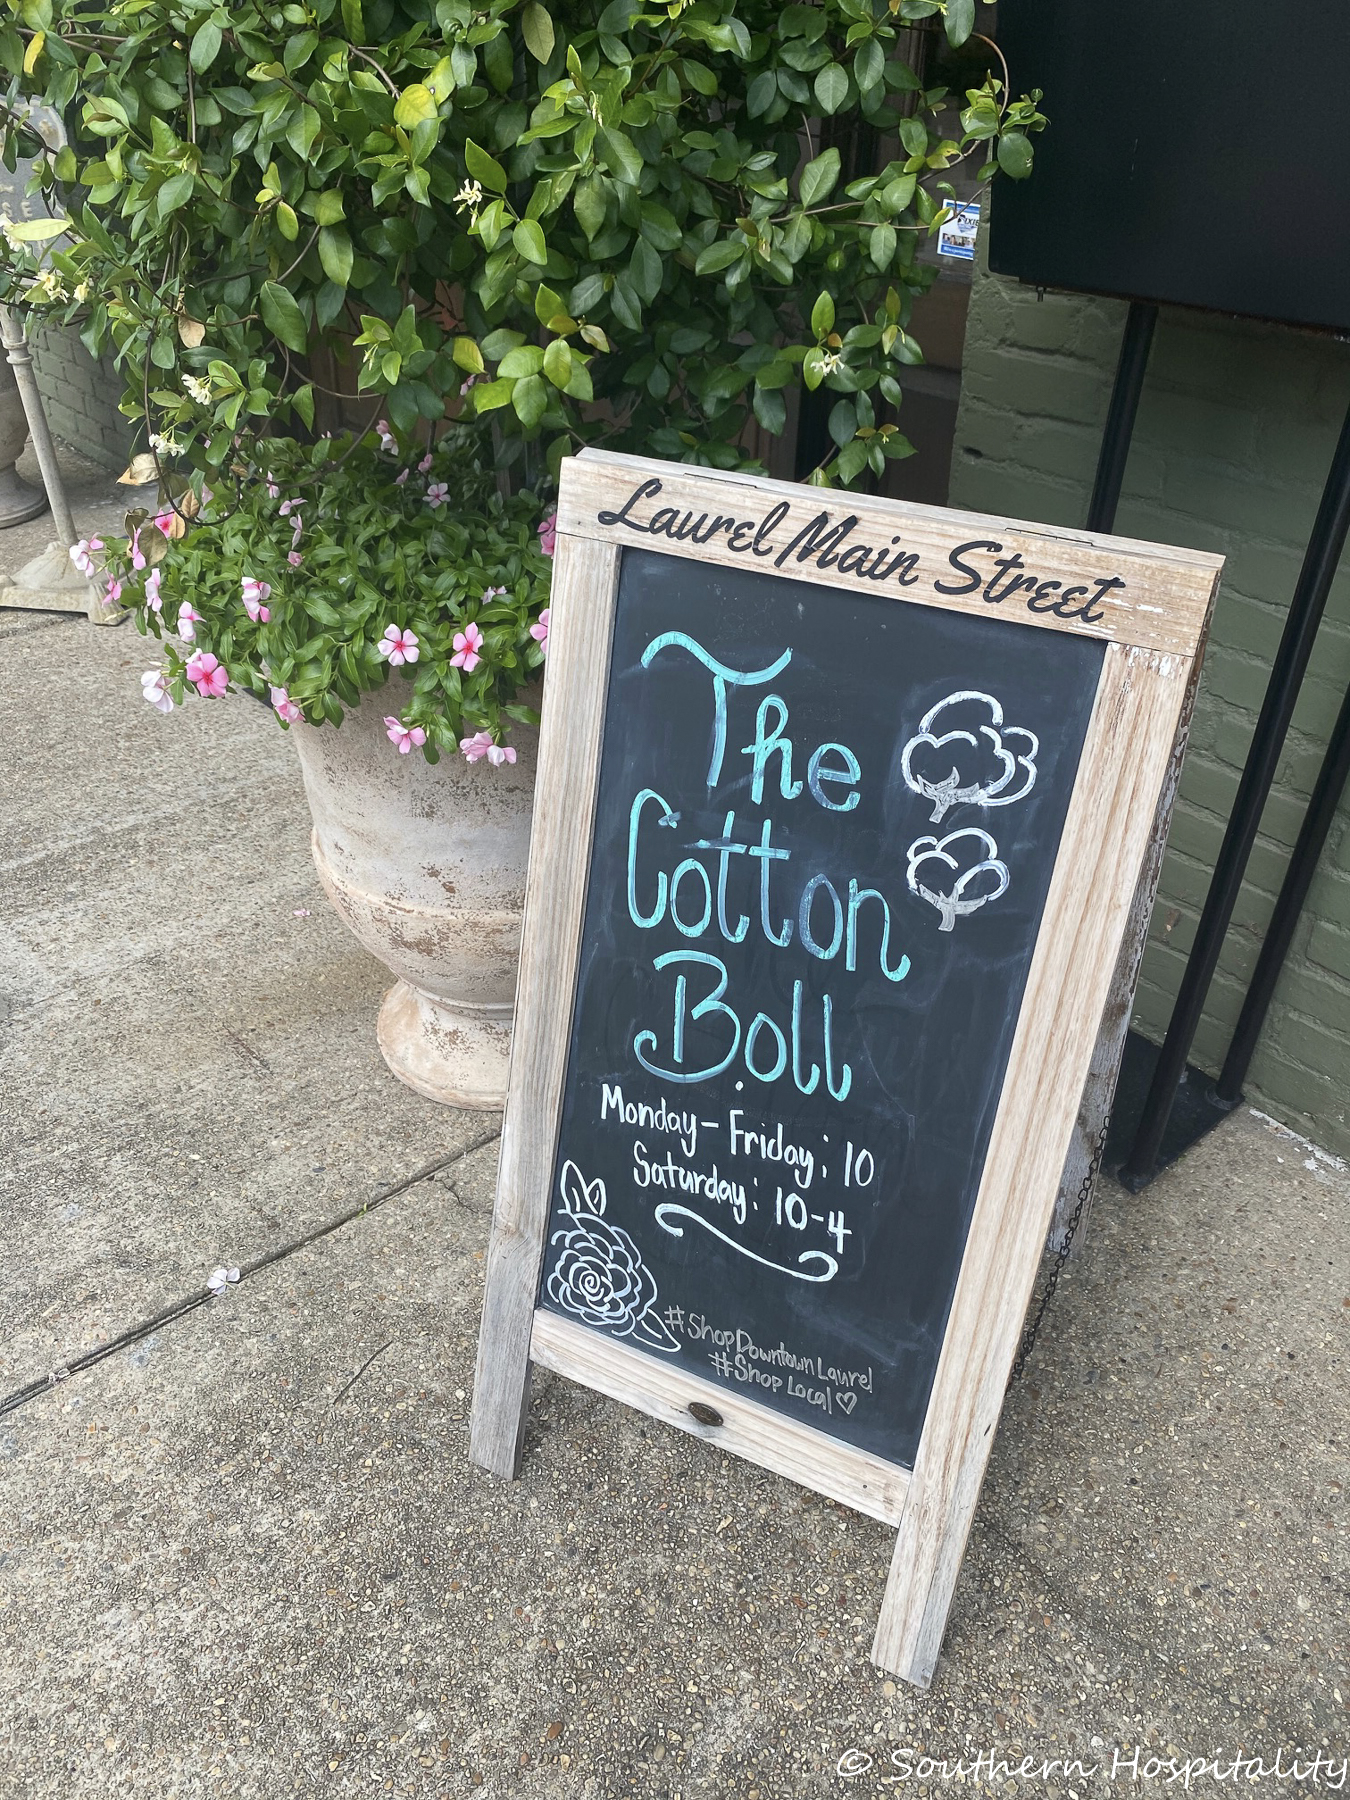 Laurel Main Street
The
Cotton
Boll
Monday-Friday: 10
Saturday: 10-4
#ShopDowntownLaurel
#Shop Local♡
© Southern Hospitality